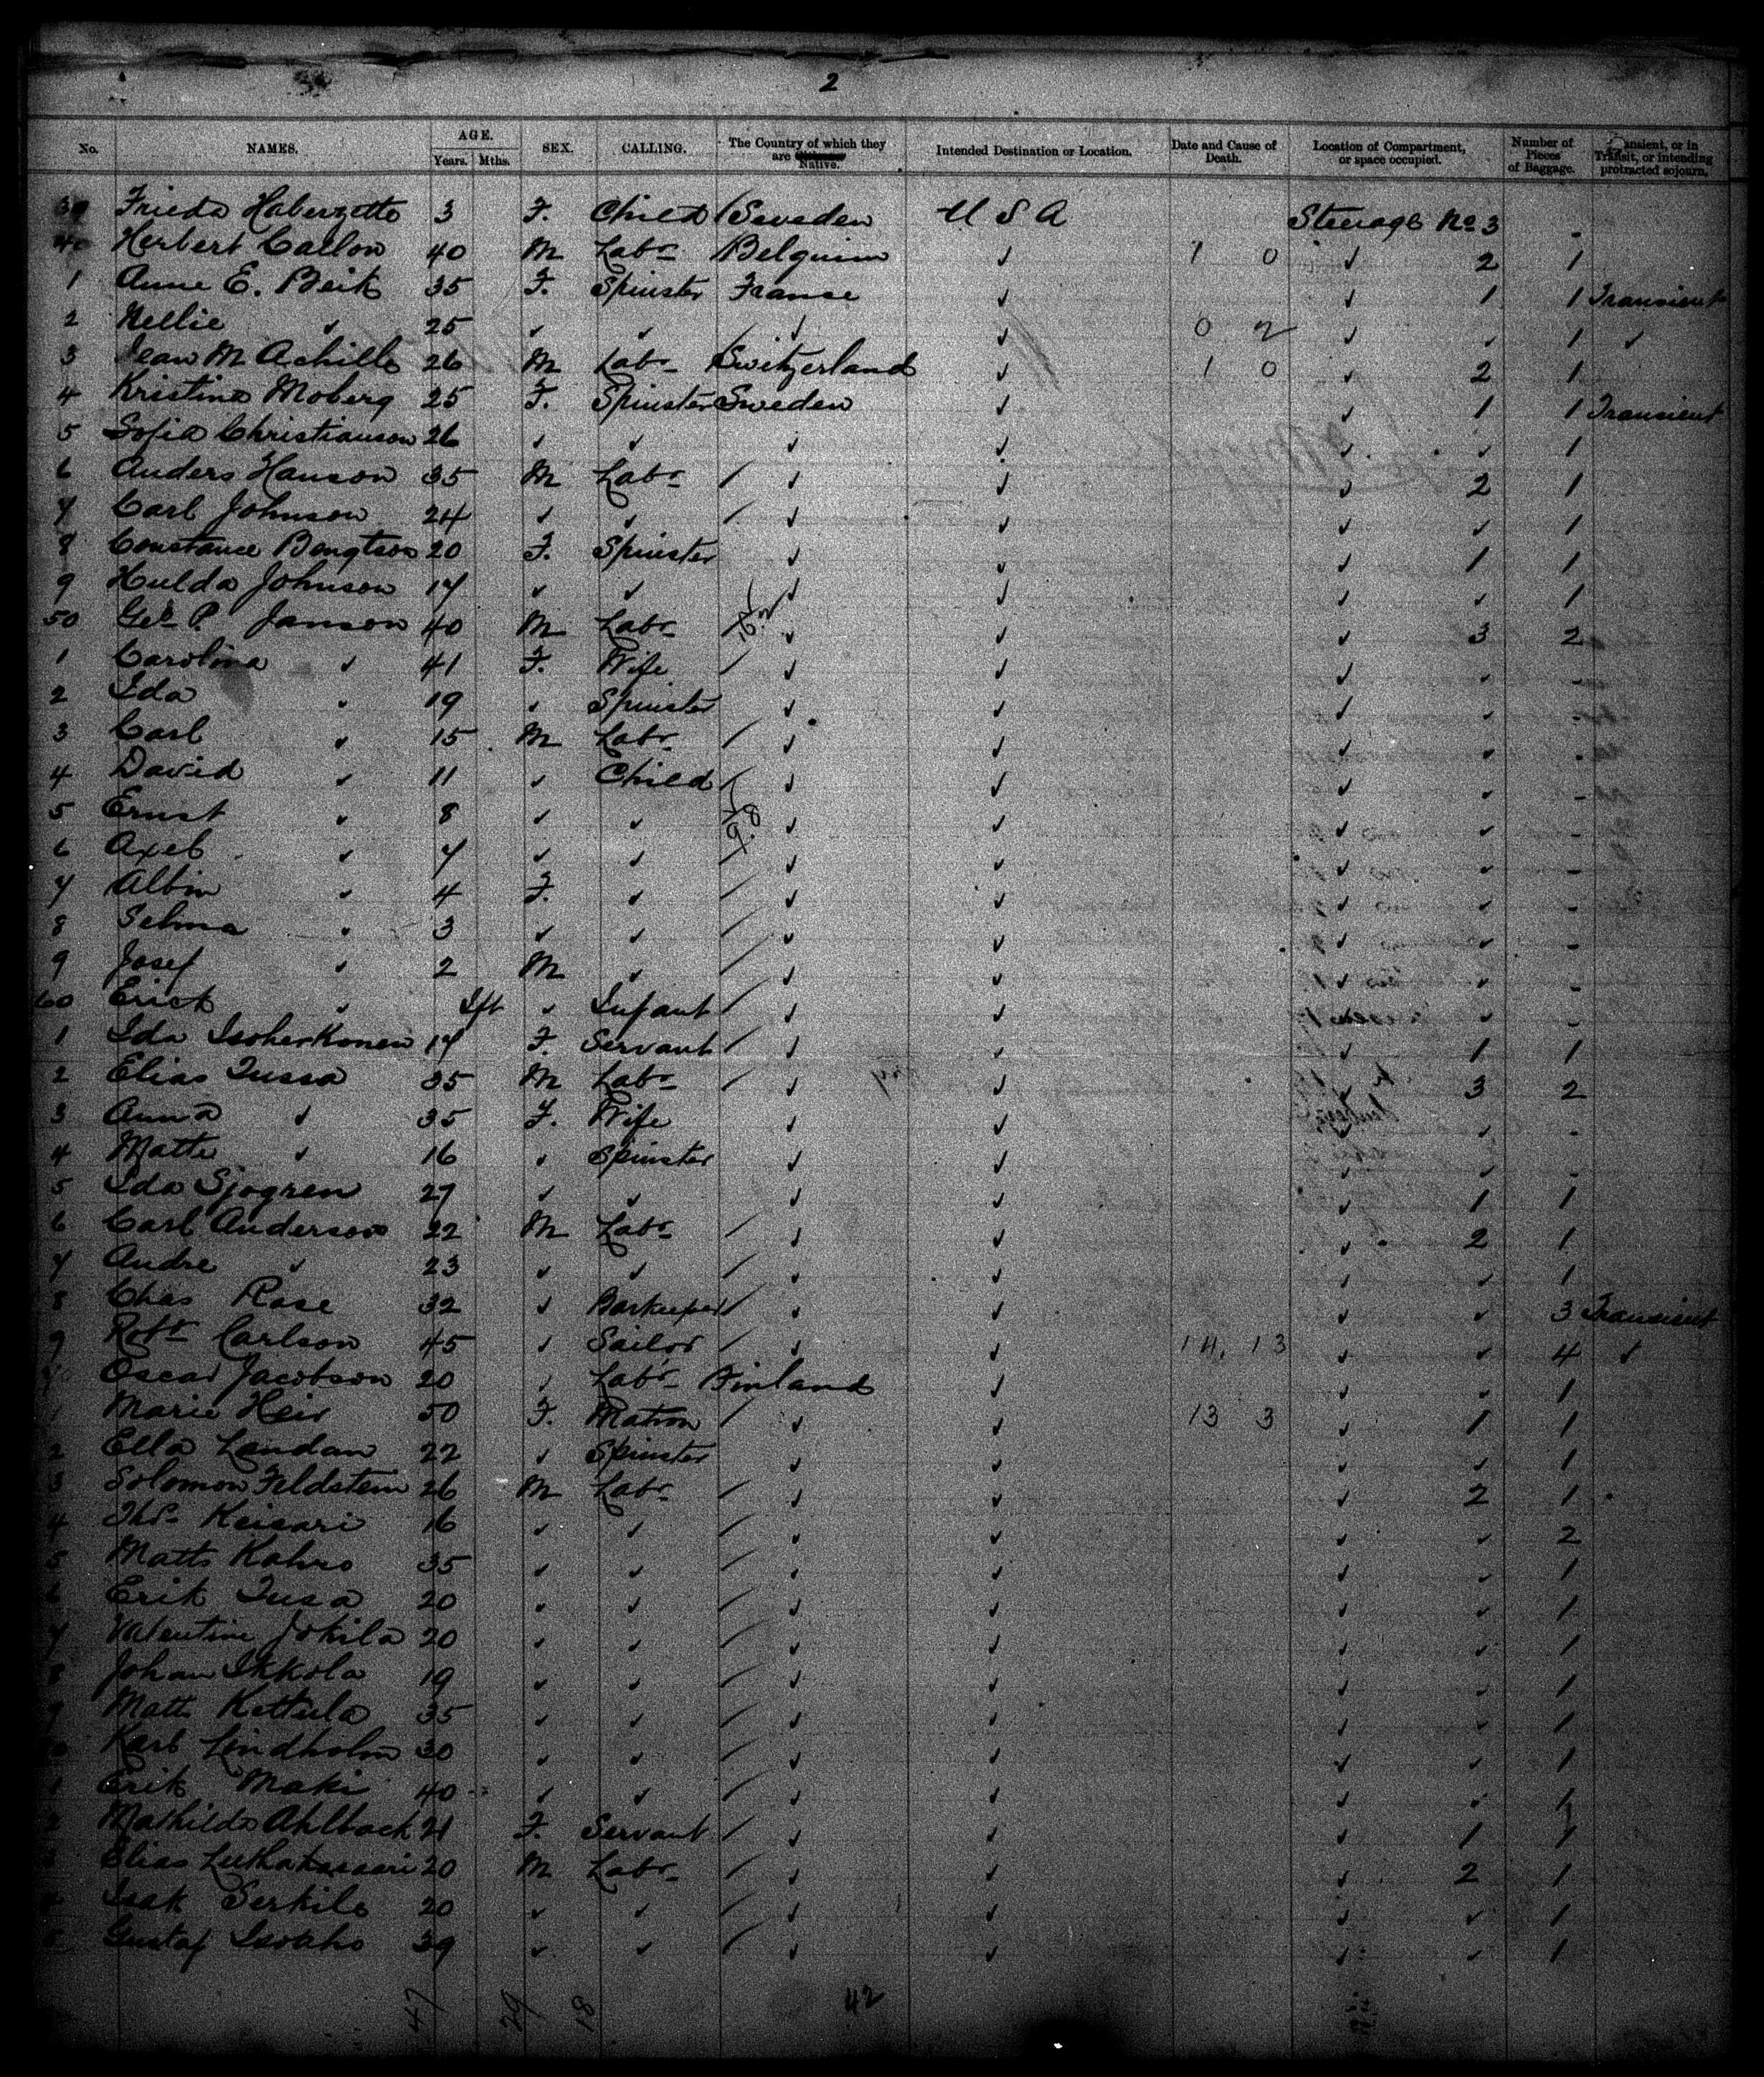 2
No. NAMES. AGE. Years. Mths. SEX. CALLING. The Country of which they are Native. Intended Destination or Location. Date and Cause of Death. Location of Compartment, or space occupied. Number of Pieces of Baggage. Transient, or in Transit, or intending protracted sojourn.
39 Frieda 3 F. Child Sweden U S A Steerage No 3 -
40 Herbert Callon 40 M Labr Belguim ✓ 1 0 ✓ 2 1
1 Anne E. Beik 35 F. Spinster Franse ✓ ✓ 1 1 Transient
2 Nellie ✓ 25 ✓ ✓ ✓ ✓ 0 2 ✓ ✓ 1 ✓
3 Jean M Achille 26 M Labr Switzerland ✓ 1 0 ✓ 2 1
4 Kristina Moberg 25 F. Spinster Sweden ✓ ✓ 1 1 Transient
5 Sofia Christianson 26 ✓ ✓ ✓ ✓ ✓ ✓ 1
6 Anders Hanson 35 M Labr ✓ ✓ ✓ 2 1
7 Carl Johnson 24 ✓ ✓ ✓ ✓ ✓ ✓ 1
8 Constance Bengtson 20 F. Spinster ✓ ✓ ✓ 1 1
9 Hulda Johnson 17 ✓ ✓ ✓ ✓ ✓ ✓ 1
50 Geo P. Janson 40 M Labr ✓ ✓ ✓ 3 2
1 Carolina ✓ 41 F. Wife ✓ ✓ ✓ ✓ -
2 Ida ✓ 19 ✓ Spinster ✓ ✓ ✓ ✓ -
3 Carl ✓ 15 M Labr ✓ ✓ ✓ ✓ -
4 David ✓ 11 ✓ Child ✓ ✓ ✓ ✓ -
5 Ernst ✓ 8 ✓ ✓ ✓ ✓ ✓ ✓ -
6 Axel ✓ 7 ✓ ✓ ✓ ✓ ✓ ✓ -
7 Albin ✓ 4 F. ✓ ✓ ✓ ✓ ✓ -
8 Selma ✓ 3 ✓ ✓ ✓ ✓ ✓ ✓ -
9 Josef ✓ 2 M ✓ ✓ ✓ ✓ ✓ -
60 Erick ✓ Ift ✓ Infant ✓ ✓ ✓ ✓ -
1 Ida Isoherkonen 17 F. Servant ✓ ✓ ✓ 1 1
2 Elias Tussa 35 M Labr ✓ ✓ ✓ 3 2
3 Anna ✓ 35 F. Wife ✓ ✓ ✓ ✓ -
4 Matte ✓ 16 ✓ Spinster ✓ ✓ ✓ ✓ -
5 Ida Sjogren 27 ✓ ✓ ✓ ✓ ✓ 1 1
6 Carl Anderson 22 M Labr ✓ ✓ ✓ 2 1
7 Andre ✓ 23 ✓ ✓ ✓ ✓ ✓ ✓ 1
8 Chas Rose 32 ✓ Barkeeper ✓ ✓ ✓ ✓ 3 Transient
9 Robt Carlson 45 ✓ Sailor ✓ ✓ 14. 13 ✓ ✓ 4 ✓
Oscar Jacobson 20 ✓ Labr Finland ✓ ✓ ✓ 1
1 Marie Heir 50 F. Matron ✓ ✓ 13 3 ✓ 1 1
2 Ella Landau 22 ✓ Spinster ✓ ✓ ✓ ✓ 1
3 Solomon Feldstein 26 M Labr ✓ ✓ ✓ 2 1
4 Thos Keisari 16 ✓ ✓ ✓ ✓ ✓ ✓ 2
5 Matts Kahro 35 ✓ ✓ ✓ ✓ ✓ ✓ 1
6 Erik Tusa 20 ✓ ✓ ✓ ✓ ✓ ✓ 1
7 Valentine Jokila 20 ✓ ✓ ✓ ✓ ✓ ✓ 1
8 Johan Ikkola 19 ✓ ✓ ✓ ✓ ✓ ✓ 1
9 Matts Kettula 35 ✓ ✓ ✓ ✓ ✓ ✓ 1
Karl Lindholm 30 ✓ ✓ ✓ ✓ ✓ ✓ 1
1 Erik Maki 40 ✓ ✓ ✓ ✓ ✓ ✓ 1
2 Mathilda Ahlback 21 F. Servant ✓ ✓ ✓ 1 1
3 Elias 20 M Labr ✓ ✓ ✓ 2 1
4 Isak Serkila 20 ✓ ✓ ✓ ✓ ✓ ✓ 1
5 Gustaf Isoaho 39 ✓ ✓ ✓ ✓ ✓ ✓ 1
47 29 18 42